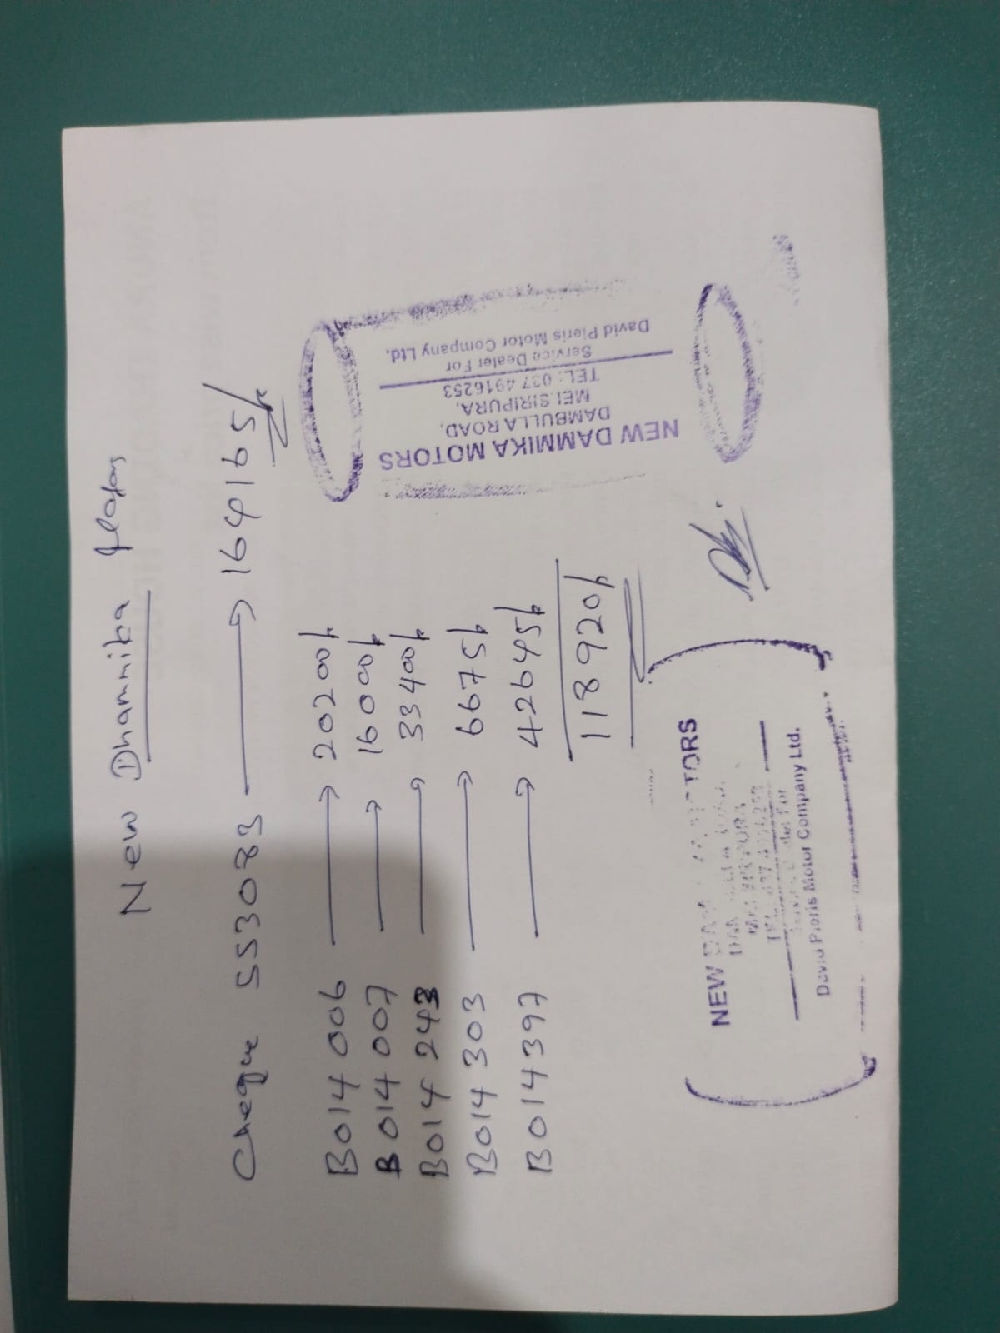 New Dhammika
Cheque 553083 → 164165/=
B014 006 → 20200/=
B014 007 → 16000/=
B014 243 → 33400/=
B014 303 → 6675/=
B014397 → 42645/=
118920/=
NEW DAMMIKA MOTORS
DAMBULLA ROAD,
MELSIRIPURA.
TEL: 037 4916253
Service Dealer For
David Pieris Motor Company Ltd.
NEW TORS
David Pieris Motor Company Ltd.